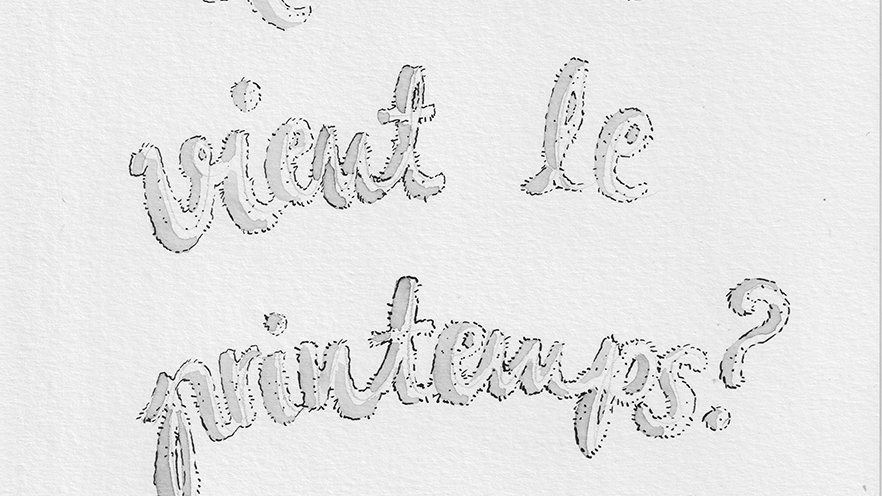 vient le
printemps?